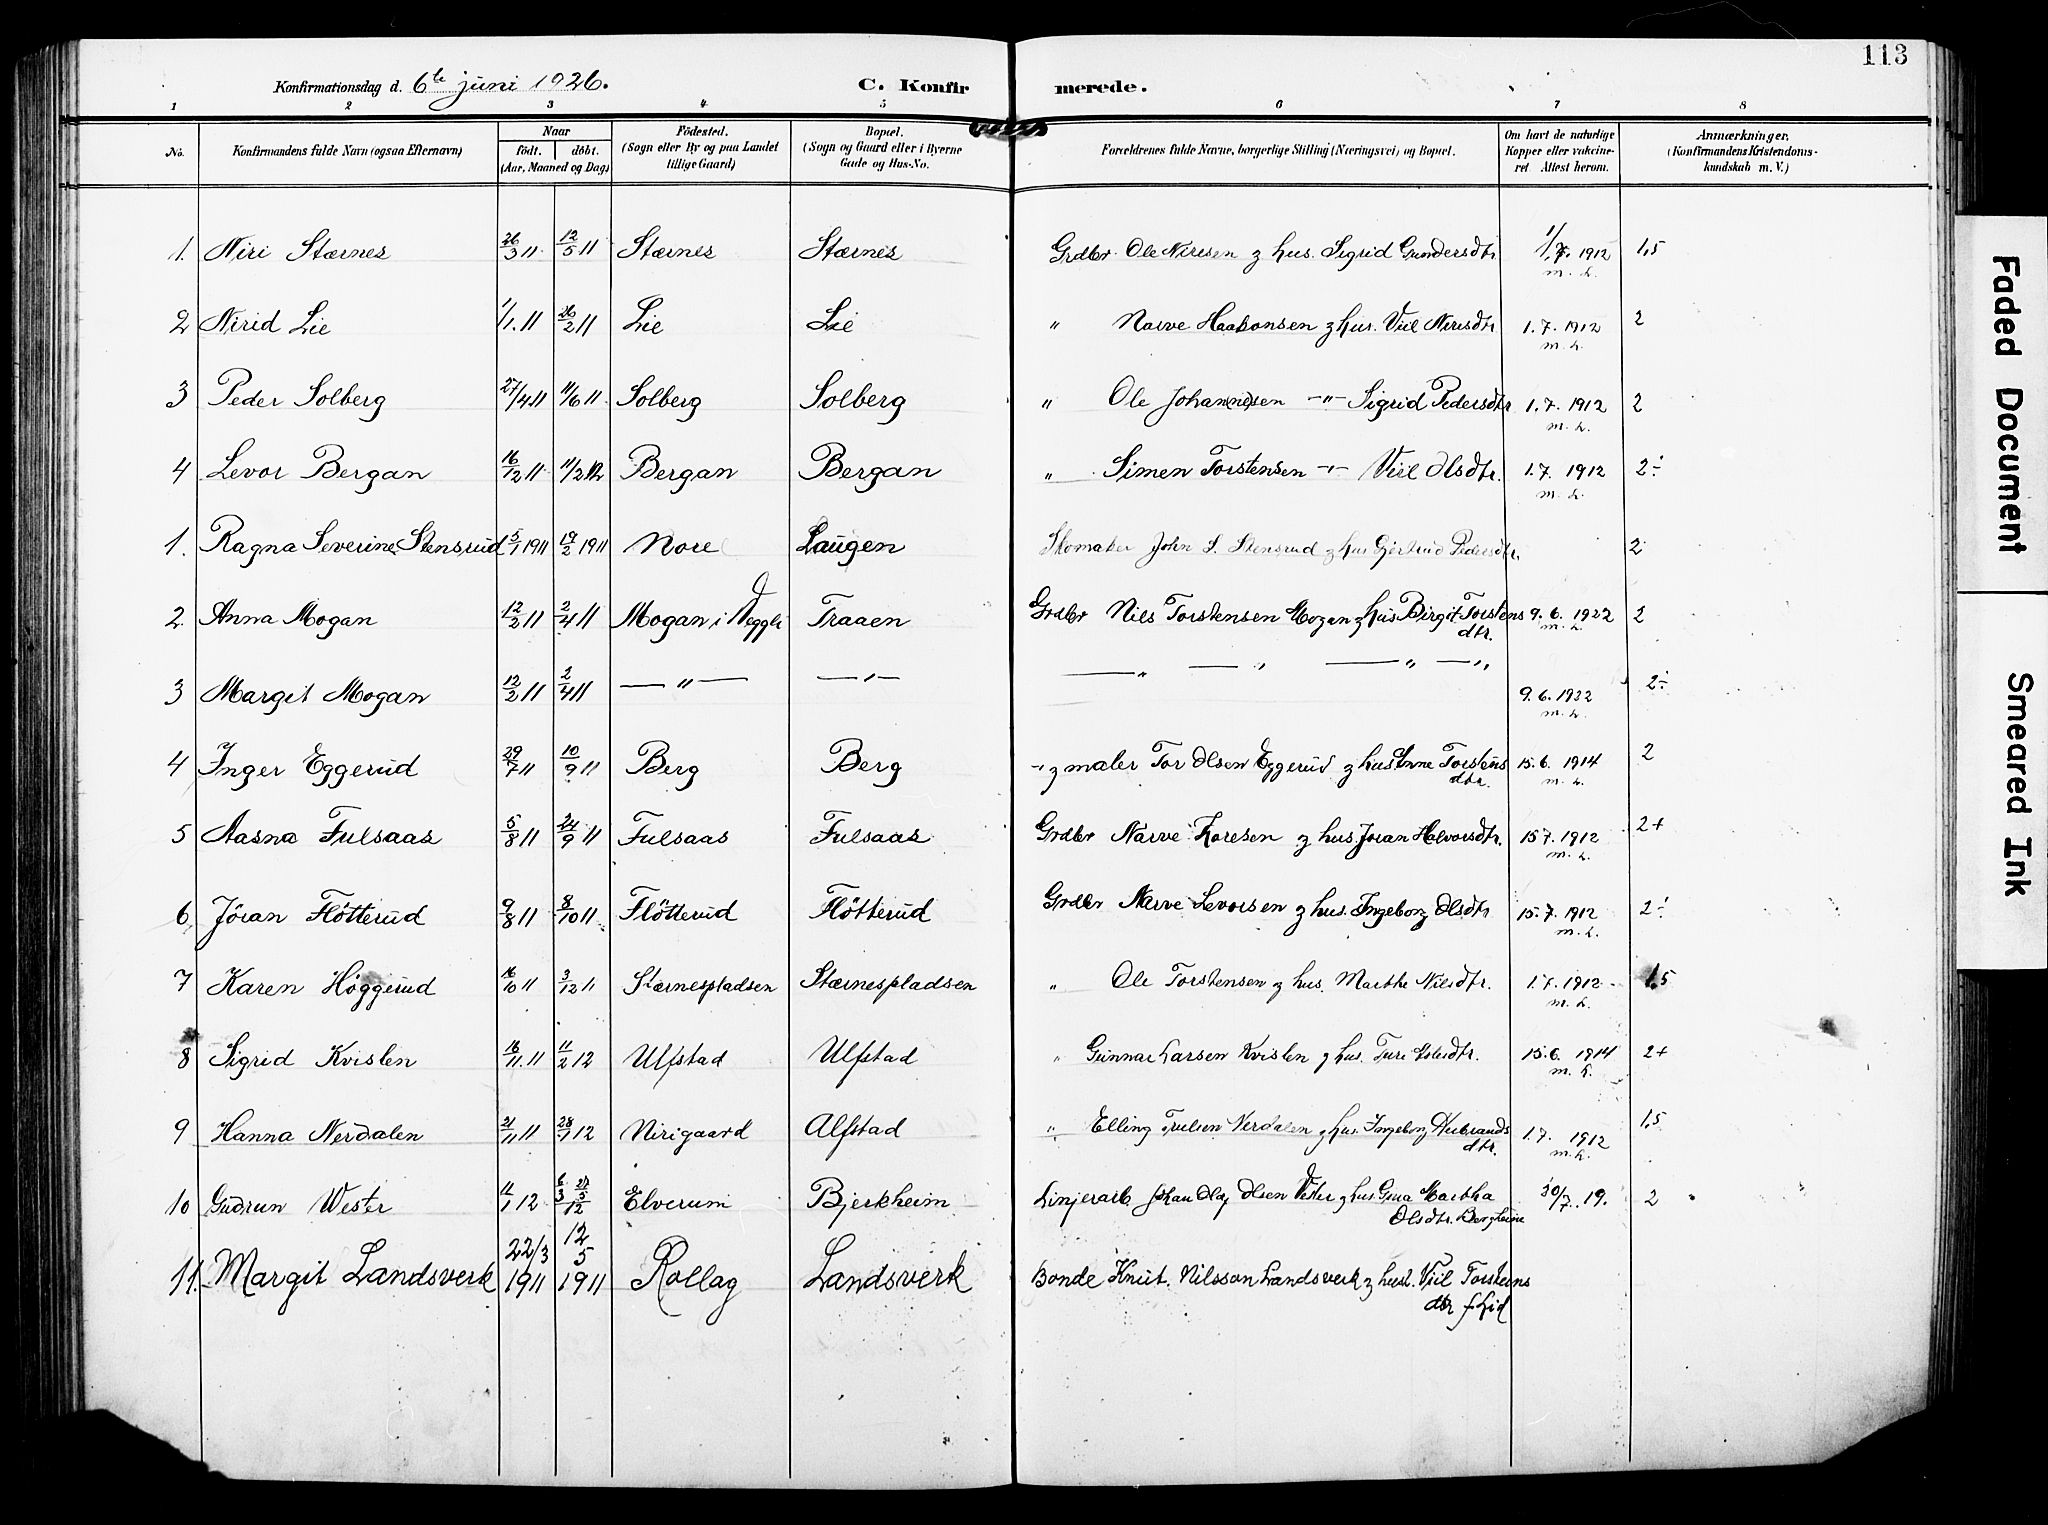 113
Konfirmationsdag d. 6te juni 1926. C. Konfirmerede.
1 2 3 4 5 6 7 8
No. Konfirmandens fulde Navn (ogsaa Efternavn) Naar født. døbt. (Aar, Maaned og Dag) Fødested. (Sogn eller By og paa Landet tillige Gaard) Bopæl. (Sogn og Gaard eller i Byerne Gade og Hus-No. Forældrenes fulde Navne, borgerlige Stilling (Næringsvei) og Bopæl. Om havt de naturlige Kopper eller vakcineret Attest herom. Anmærkninger. (Konfirmandens Kristendomskundskab m. V.)
1. Niri Stærnes 26/3 11 12/5 11 Stærnes Stærnes Grdbr. Ole Niresen g hus. Sigrid Gundersdtr 1/7. 1912 m. h. 1,5
2 Nirid Lie 1/1. 11 26/2 11 Lie Lie " Narve Haakonsen g hus. Viil Nirisdtr 1. 7. 1912 m. h. 2
3 Peder Solberg 27/4 11 11/6 11. Solberg Solberg " Ole Johannesen -"- Sigrid Pedersdtr 1. 7. 1912 m. h. 2
4 Levor Bergan 16/12 11 11/2 12 Bergan Bergan " Simen Torstensen -"- Viil Olsdtr. 1. 7. 1912 m. h. 2÷
1. Ragna Severine Stensrud 5/1 1911 19/2 1911 Nore Laugen Skomaker John S. Stensrud g hus Gjertrud Pedersdtr. 2
2. Anna Mogan 12/2 11 2/4 11 Mogan i Veggli Traaen Grdbr Nils Torstensen Mogan g hus Birgit Torstens dtr. 9. 6. 1922 m. h. 2
3 Margit Mogan 12/2 11 2/4 11 — " — — " — — " — " — " — " 9. 6. 1922 m. h. 2÷
4 Inger Eggerud 29/7 11 10/9 11 Berg Berg -" g maler Tor Olsen Eggerud g hus Anne Torstens dtr. 15. 6. 1914 m. h. 2
5 Aasna Fulsaas 5/8 11 24/9 11 Fulsaas Fulsaas Grdbr Narve Toresen g hus. Jøran Halvorsdtr. 15 7. 1912 m. h. 2+
6 Jøran Fløtterud 9/8 11 8/10 11 Fløtterud Fløtterud Grdbr Narve Levorsen g hus. Ingeborg Olsdtr 15. 7. 1912 m. h. 2÷
7 Karen Høggerud 16/10 11 3/12 11 Stærnespladsen Stærnespladsen " Ole Torstensen g hus. Marthe Nilsdtr. 1. 7. 1912 m. h. 1,5
8 Sigrid Kvislen 16/11. 11 11/2 12 Ulfstad Ulfstad " Gunnar Larsen Kvislen g hus. Turi dtr. 15. 6. 1914 m. h. 2+
9 Hanna Nerdalen 21/11 11 28/1 12 Nirigaard Alfstad " Elling Trulsen Nerdalen g hus. Ingeborg Herbrands dtr. 1. 7. 1912 m. h. 1,5
10 Gudrun Wester 11/1 12 6/3 27/5 12 Elverum Bjerkheim Linjearb. Johan Olaf Olsen Vester g hus Gina Martha Olsdtr. Bergheim 30/7. 19. 2
11. Margit Landsverk 22/3 1911 12/5 1911 Rollag Landsverk Bonde Knut. Nilsson Landsverk g hust. Viil Torsteins dtr f. Lid
Faded Document
Smeared Ink